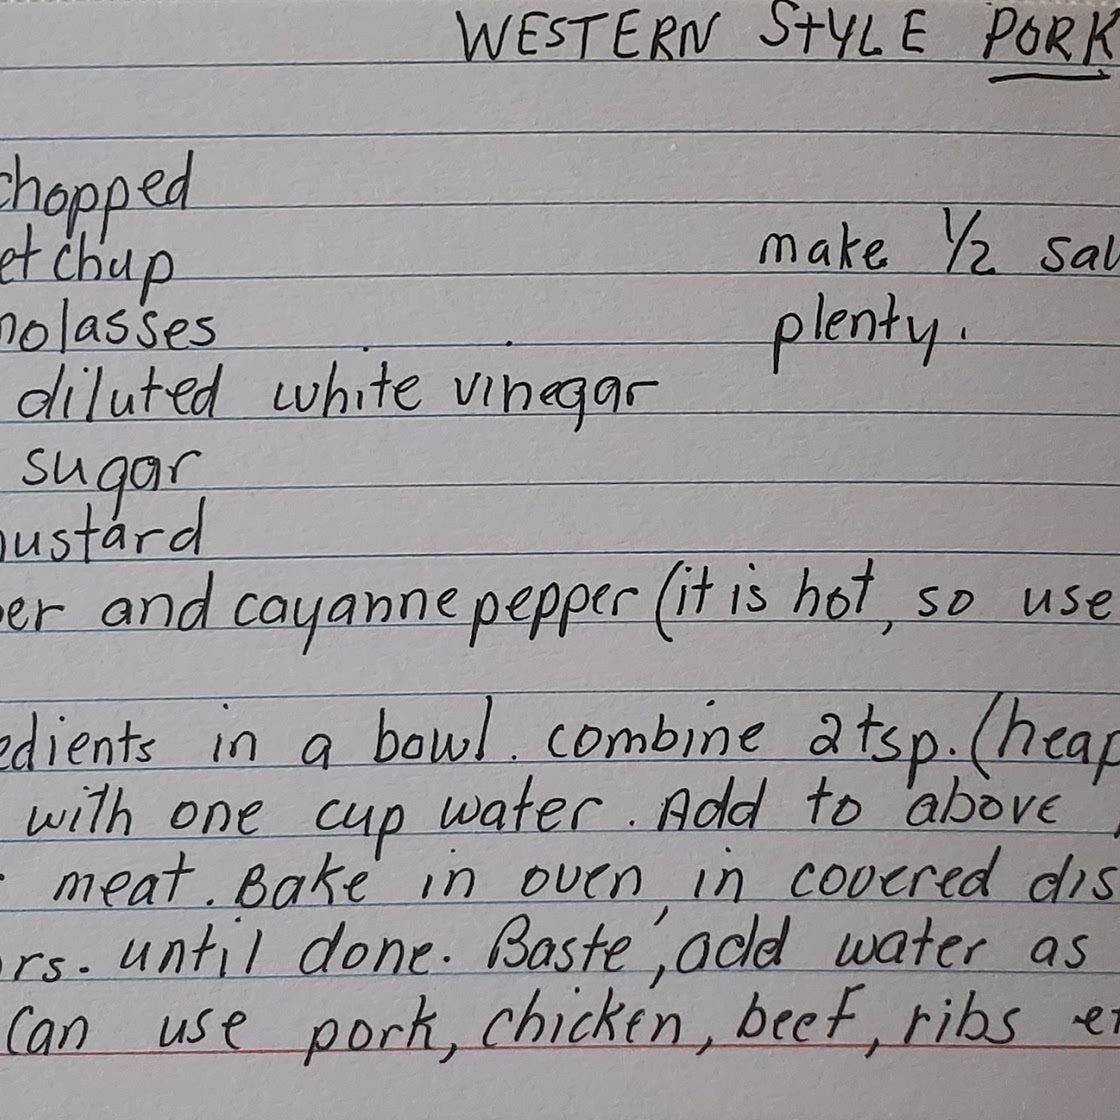 WESTERN STYLE PORK
chopped
etchup
make 1/2 sau
molasses
plenty.
diluted white vinegar
sugar
ustard
er and cayannepepper (it is hot, so use
edients in a bowl. combine 2 tsp. (heap
with one cup water. Add to above
meat. Bake in oven, in covered dis
rs. until done. Baste, add water as
Can use pork, chicken, beef, ribs e